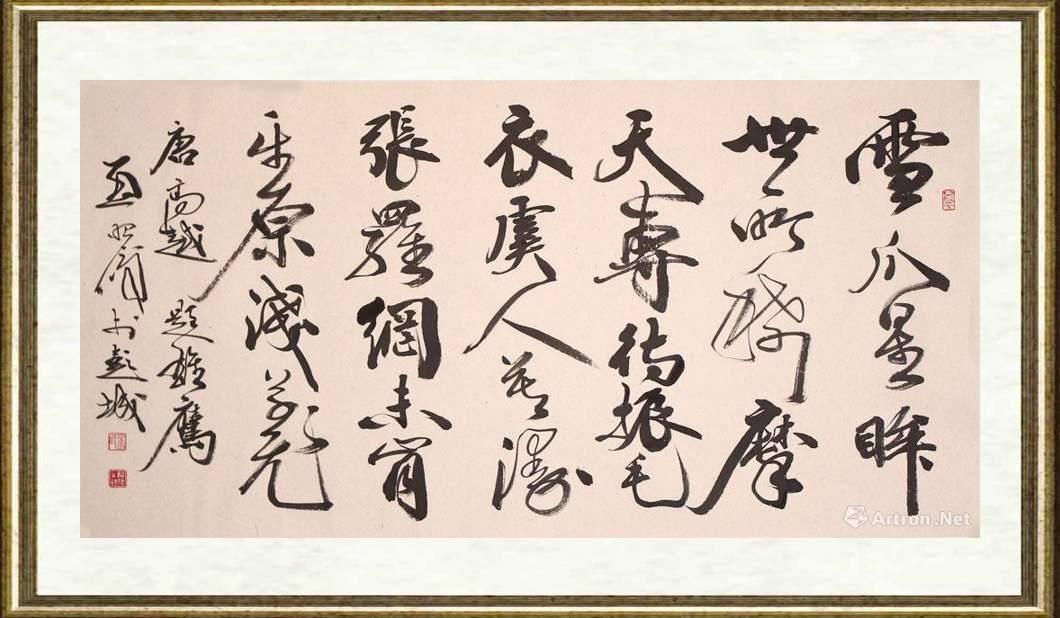 雪爪星眸
世所稀摩
天專待振毛
衣虞人莫漫
張羅網未肯
平原淺草飛
唐高越 題雄鷹
於彭城
Artron.Net